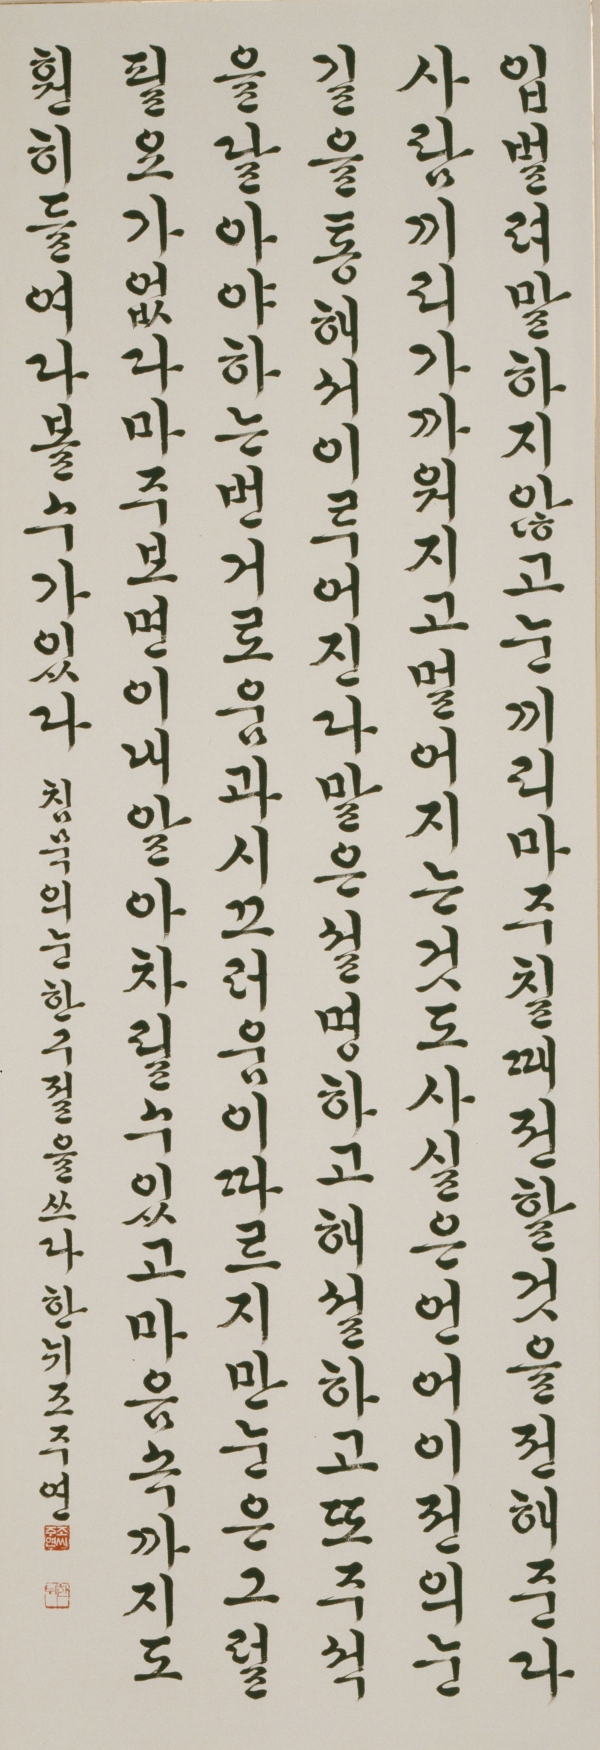 입벌려말하지않고눈끼리마주칠때전할것을전해준다
사람끼리가까워지고멀어지는것도사실은언어이전의눈
길을통해서이루어진다말은설명하고해설하고또주석
을달아야하는번거로움과시끄러움이따르지만눈은그럴
필요가없다마주보면이내알아차릴수있고마음속까지도
훤히들여다볼수가있다 침묵의눈한구절을쓰다한뉘조주연
조씨주연